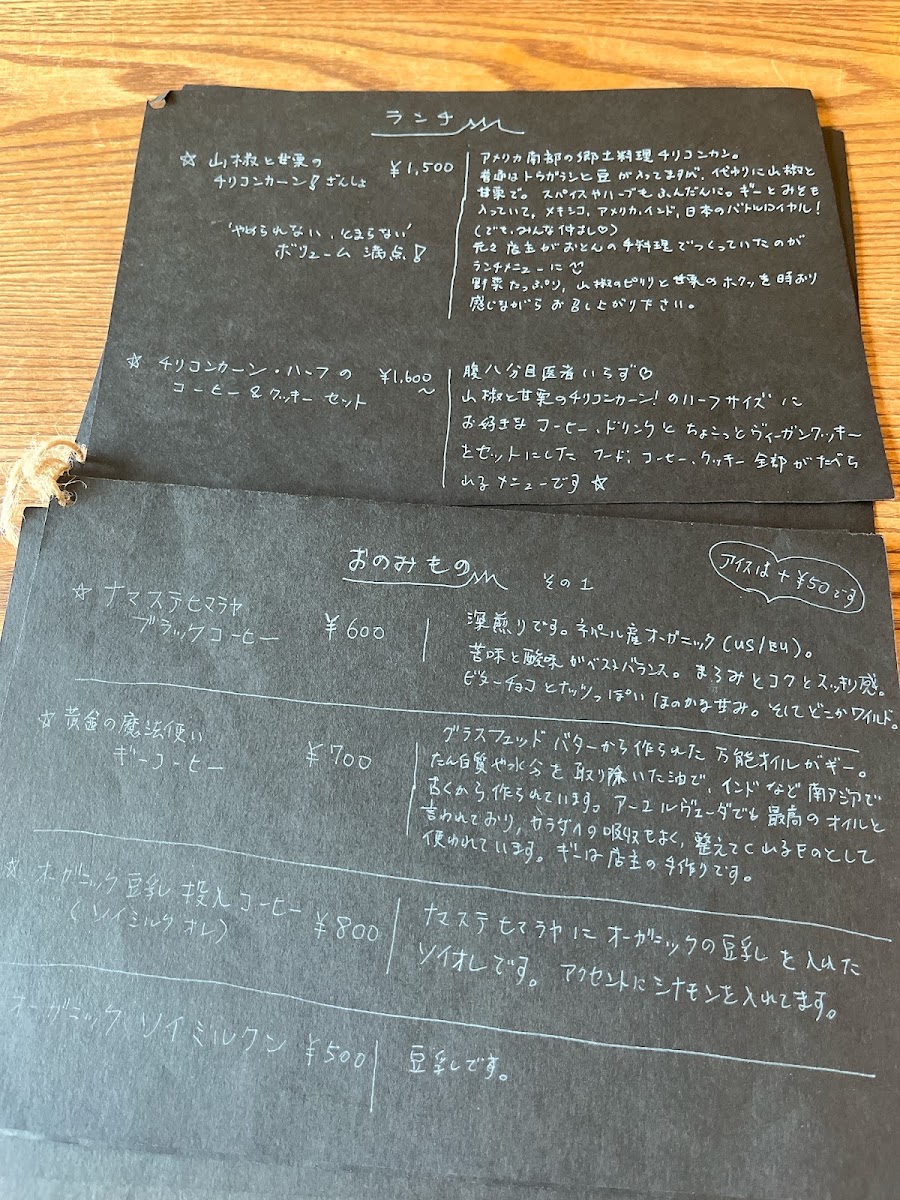 ランチ
☆ 山椒と甘栗の
チリコンカーン! ざんしょ
¥1,500
'やめられない、とまらない'
ボリューム満点!
アメリカ南部の郷土料理チリコンカン。
普通はトウガラシと豆が入ってますが、代わりに山椒と
甘栗で。スパイスやハーブもふんだんに。ギーとみそも
入っていて、メキシコ、アメリカ、インド、日本のバトルロイヤル!
(でも、みんな仲よし♡)
元々店主がおとんの手料理でつくっていたのが
ランチメニューに
野菜たっぷり、山椒のピリリと甘栗のホクッを時おり
感じながらお召し上がり下さい。
☆ チリコンカーン・ハーフの
コーヒー&クッキーセット
¥1,600
〜
腹八分目医者いらず♡
山椒と甘栗のチリコンカーン!のハーフサイズに
お好きなコーヒー、ドリンクとちょこっとヴィーガンクッキー
をセットにした フード、コーヒー、クッキー全部がたべら
れるメニューです☆
おのみもの
その1
アイスは+¥50です
☆ ナマステヒマラヤ
ブラックコーヒー
¥600
深煎りです。ネパール産オーガニック(US/EU)。
苦味と酸味がベストバランス。まろみとコクとスッキリ感。
ビターチョコとナッツっぽいほのかな甘み。そしてどこかワイルド。
☆ 黄金の魔法使い
ギーコーヒー
¥700
グラスフェッドバターから作られた万能オイルがギー。
たん白質や水分を取り除いた油で、インドなど南アジアで
古くから作られています。アーユルヴェーダでも最高のオイルと
言われており、カラダへの吸収もよく、整えてくれるものとして
使われています。ギーは店主の手作りです。
☆ オーガニック豆乳投入コーヒー
(ソイミルクオレ)
¥800
ナマステヒマラヤにオーガニックの豆乳を入れた
ソイオレです。アクセントにシナモンを入れてます。
オーガニック・ソイミルクン ¥500
豆乳です。